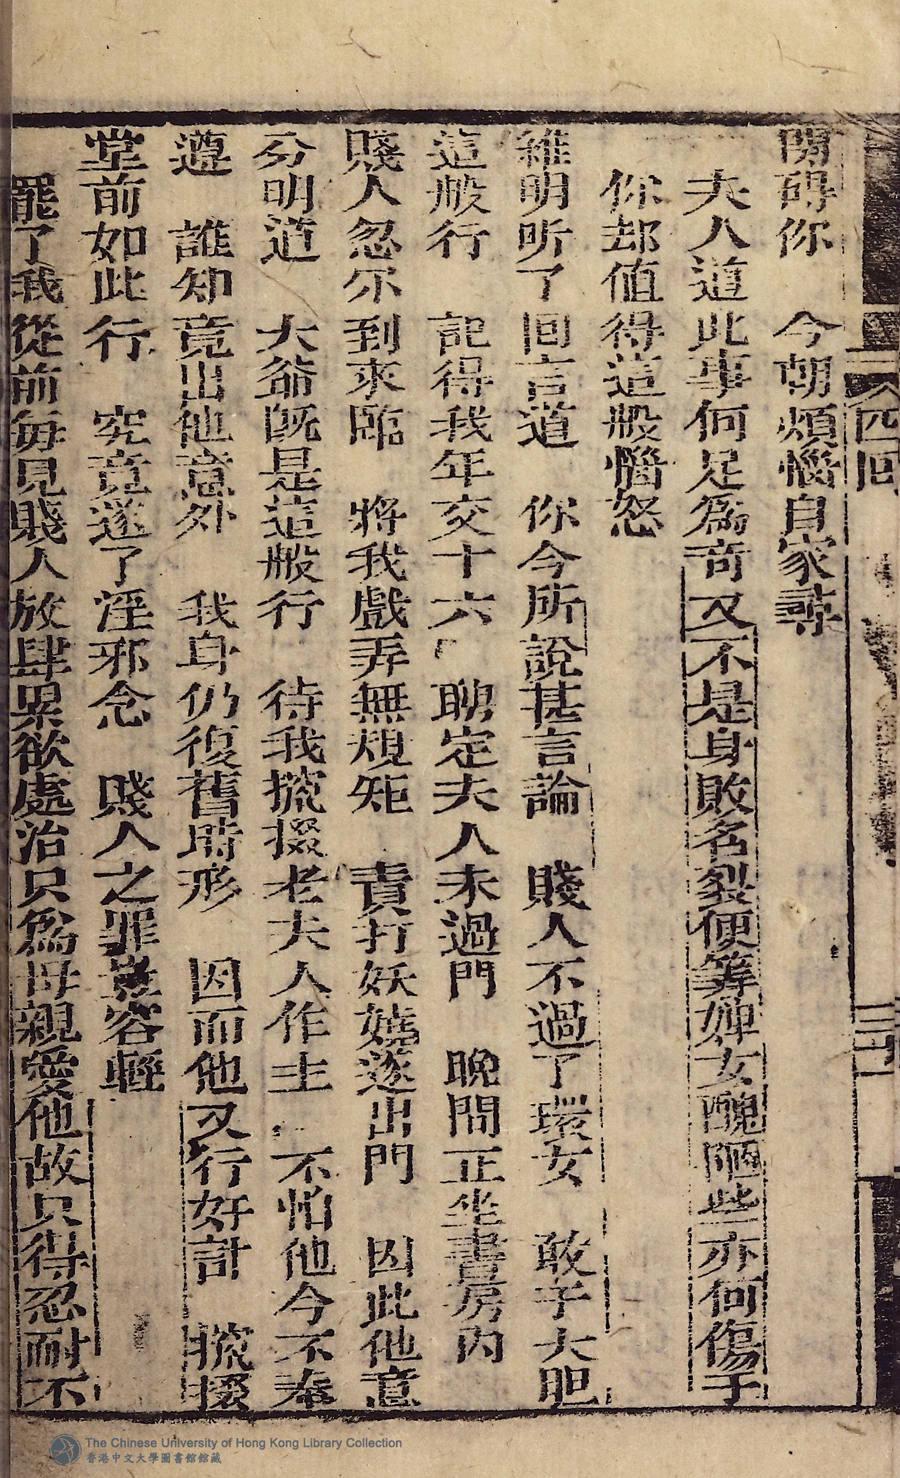 四回
關碍你　今朝煩惱自家尋
夫人道此事何足爲奇又不是身敗名裂便筭婢女醜陋些亦何傷于
你却值得這般惱怒
維明听了回言道　你今所說甚言論　賤人不過了環女　敢于大胆
這般行　記得我年交十六　聘定夫人未過門　晚間正坐書房內
賤人忽尔到來臨　將我戲弄無規矩　責打妖嬈遂出門　因此他意
分明道　大爺旣是這般行　待我攛掇老夫人作主　不怕他今不奉
遵　誰知竟出他意外　我身仍復舊時形　因而他又行奸計　攛掇
堂前如此行　究竟遂了淫邪念　賤人之罪豈容輕
罷了我從前每見賤人放肆累欲處治只爲母親愛他故只得忍耐不
The Chinese University of Hong Kong Library Collection
香港中文大學圖書館館藏